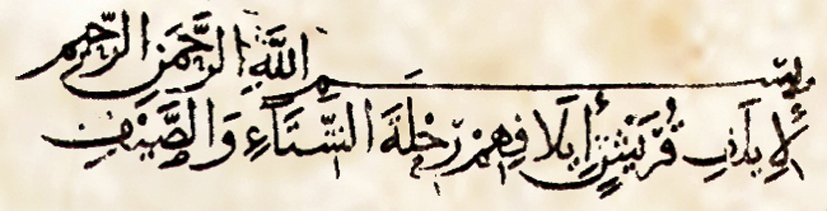 بِسْمِ اللَّهِ الرَّحْمَنِ الرَّحِيمِ
لِإِيلَافِ قُرَيْشٍ إِيلَافِهِمْ رِحْلَةَ الشِّتَاءِ وَالصَّيْفِ